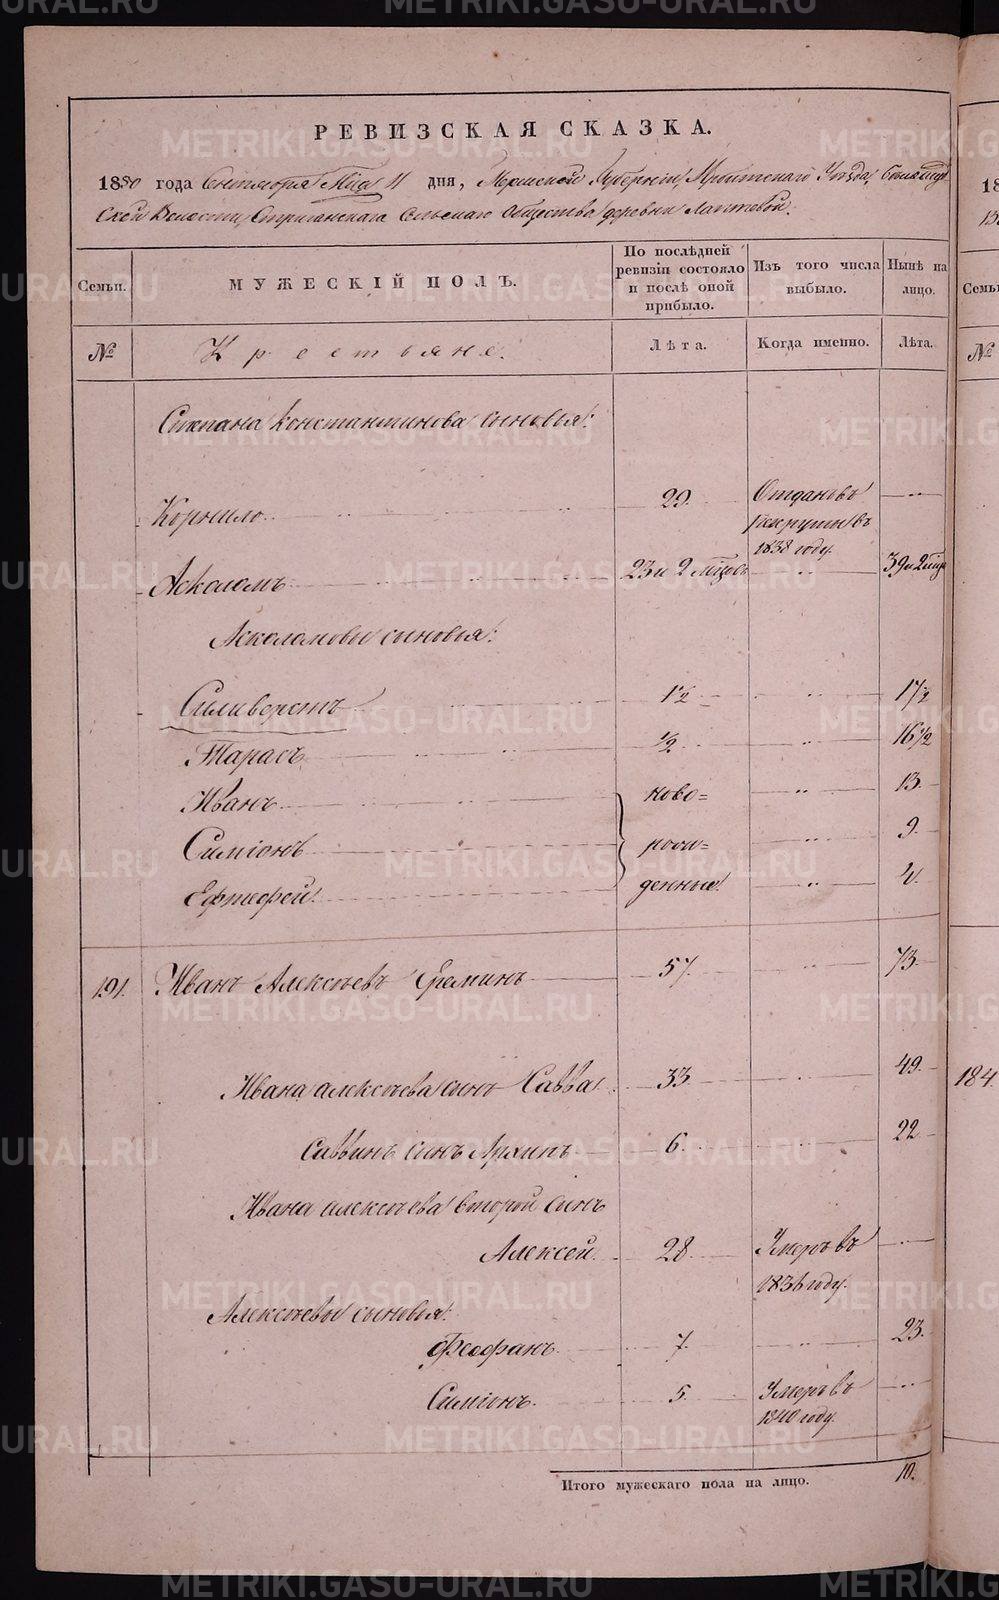 РЕВИЗСКАЯ СКАЗКА.
1850 года Сентября М̃ца 11 дня, Пермской Губернии, Ирбитского Уѣзда,
ской Волости, Стриганскаго Сельскаго Общества деревни Лаптевой.
Семьи. МУЖЕСКІЙ ПОЛЪ. По послѣдней ревизіи состояло и послѣ оной прибыло. Изъ того числа выбыло. Нынѣ на лицо.
№ Крестьяне. Лѣта. Когда именно. Лѣта.
Степана Константинова сыновья:
Корнило 29. Отданъ въ рекруты въ 1838 году.
Асколомъ 23 и 2 мѣсц. 39 и 2 мѣц.
Асколамовы сыновья:
Силиверстъ 1½ 17½
Тарасъ ½ 16½
Иванъ ново= 13.
Симіонъ рож= 9.
Ефтефей. денные 4.
191. Иванъ Алексѣевъ Ереминъ 57. 73.
Ивана Алексѣева сынъ Савва 33. 49.
Саввинъ сынъ Архипъ 6. 22
Ивана Алексѣева второй сынъ
Алексей. 28. Умеръ въ 1836 году.
Алексѣевы сыновья:
Феофанъ 7. 23.
Симіонъ. 5. Умеръ въ 1840 году.
Итого мужескаго пола на лицо. 10.
18
Семьи
№
184
METRIKI.GASO-URAL.RU